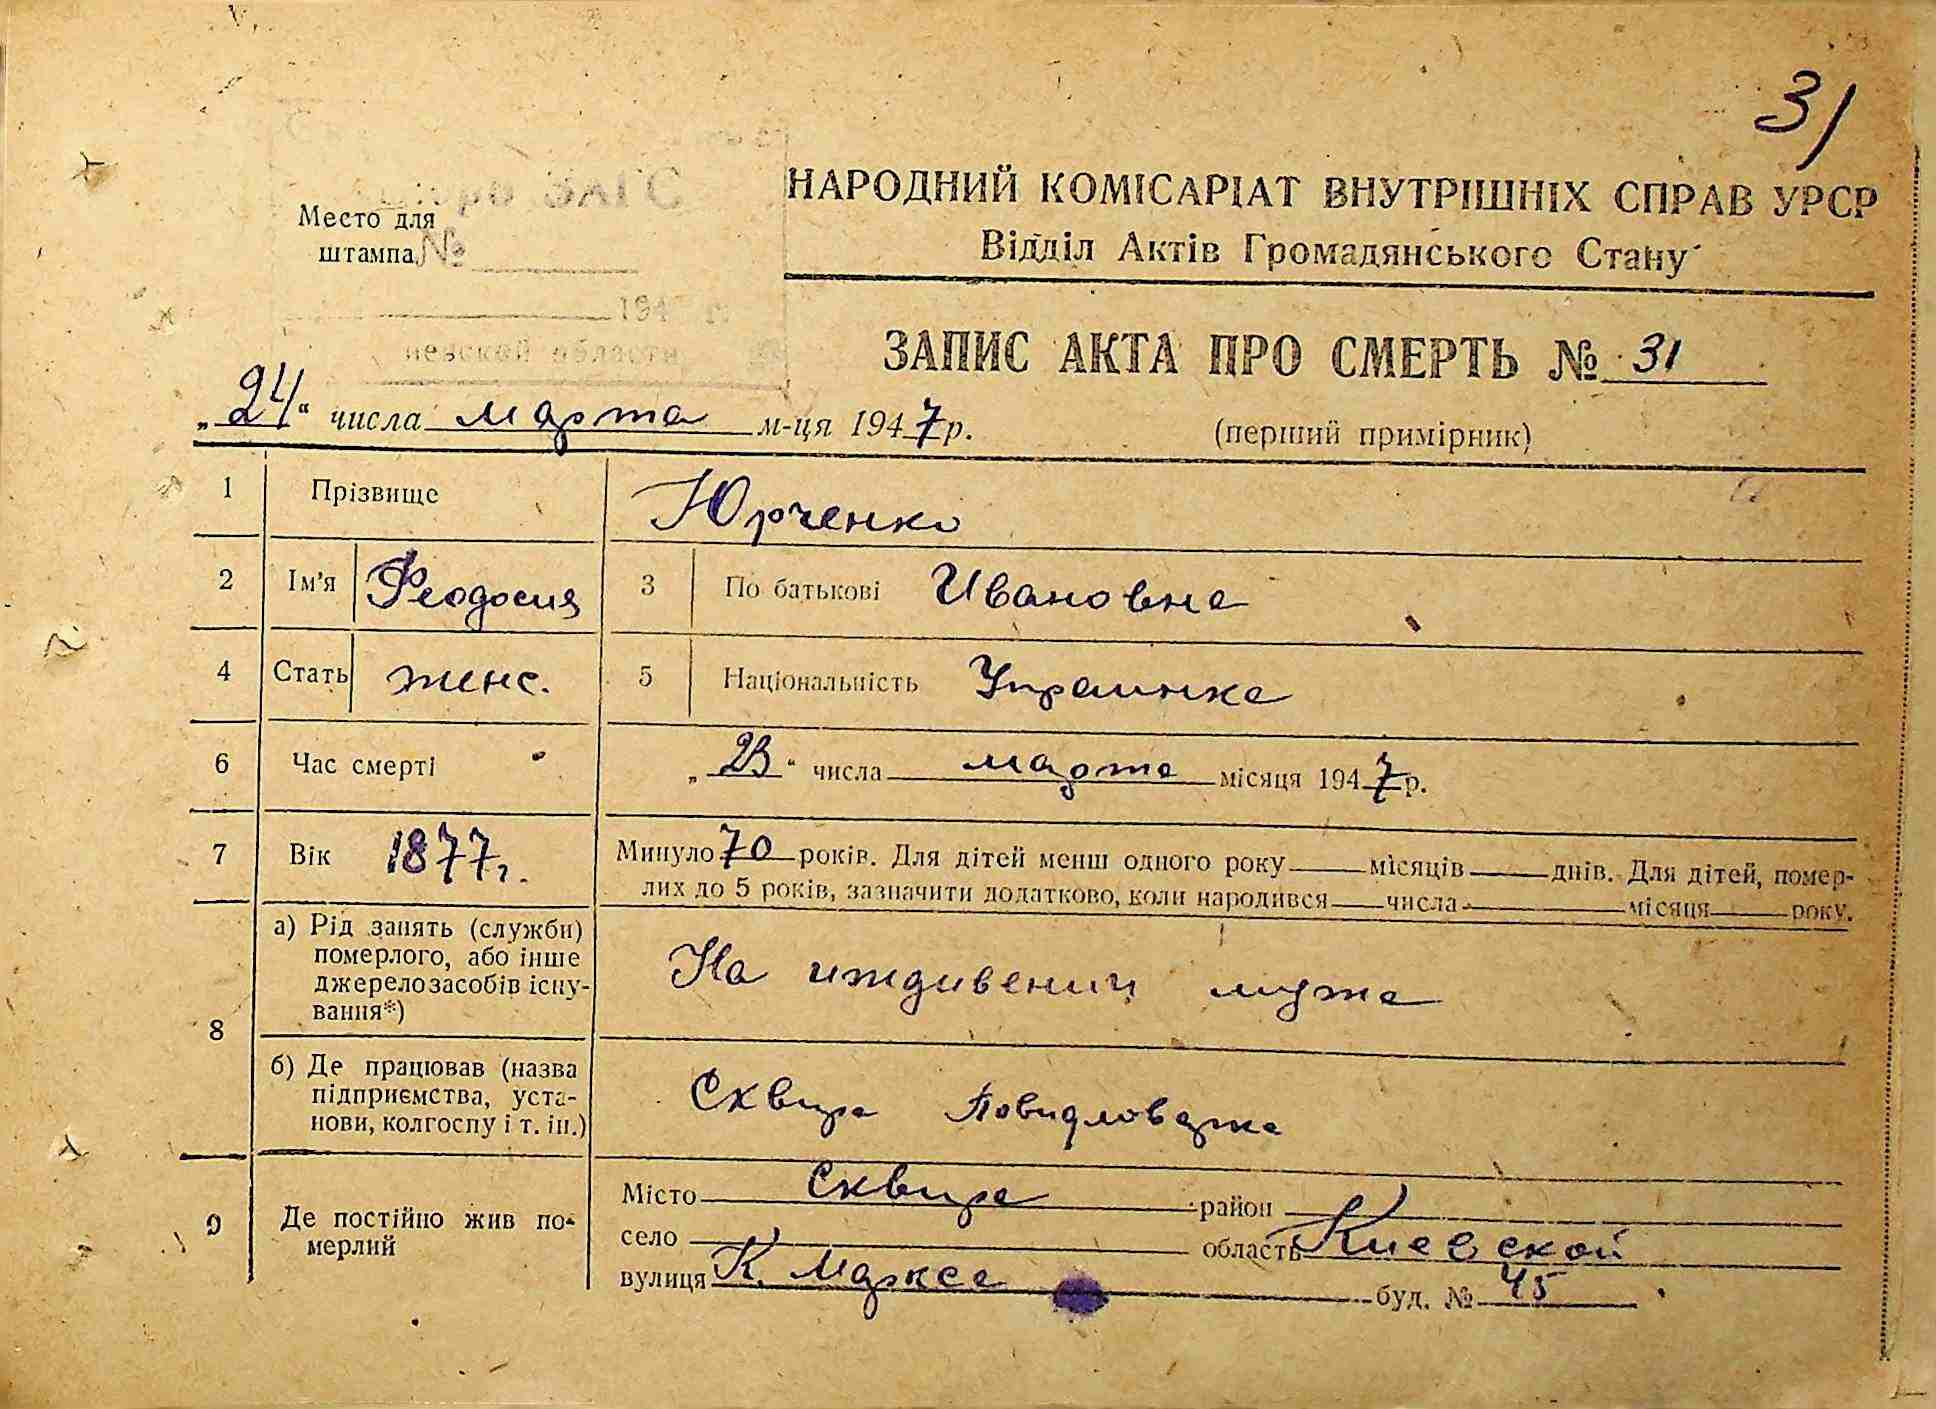 31
НАРОДНИЙ КОМІСАРІАТ ВНУТРІШНІХ СПРАВ УРСР
Відділ Актів Громадянського Стану
бюро ЗАГС
Место для
штампа №
194 г.
иевской области
ЗАПИС АКТА ПРО СМЕРТЬ № 31
„24“ числа марта м-ця 1947 р.
(перший примірник)
1 Прізвище Юрченко
2 Ім'я Феодосия 3 По батькові Ивановна
4 Стать женс. 5 Національність Украинка
6 Час смерті „23“ числа марта місяця 1947 р.
7 Вік 1877 г. Минуло 70 років. Для дітей менш одного року місяців днів. Для дітей, помер-
лих до 5 років, зазначити додатково, коли народився числа місяця року.
8 а) Рід занять (служби)
померлого, або інше
джерело засобів існу-
вання*)
На иждивении мужа
б) Де працював (назва
підприємства, уста-
нови, колгоспу і т. ін.)
Сквира Повидловарка
9 Де постійно жив по-
мерлий
Місто Сквира район
село область Киевской
вулиця К. Маркса буд. № 45